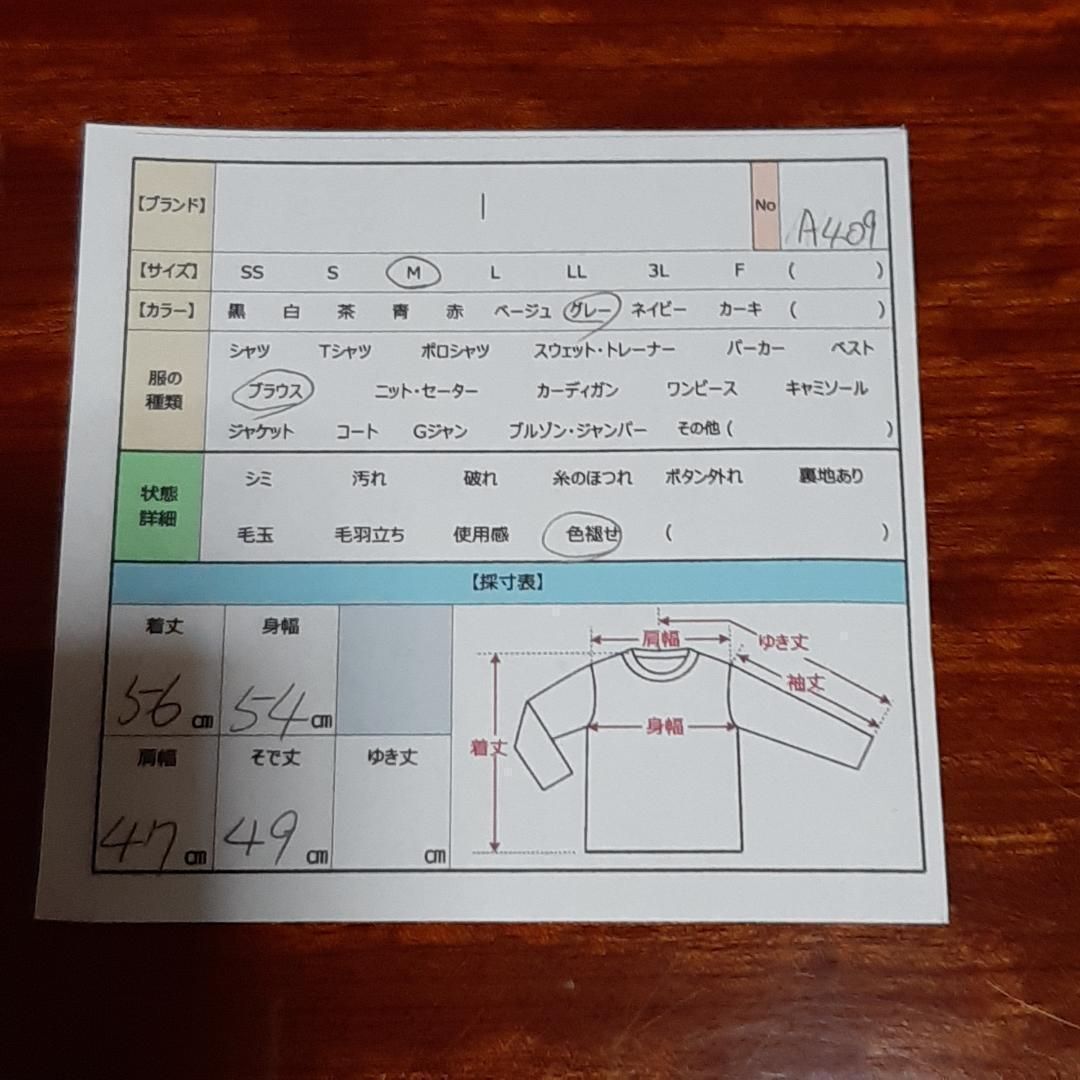 【ブランド】 | No A409
【サイズ】 SS S M L LL 3L F ( )
【カラー】 黒 白 茶 青 赤 ベージュ グレー ネイビー カーキ ( )
服の種類
シャツ Tシャツ ポロシャツ スウェット・トレーナー パーカー ベスト
ブラウス ニット・セーター カーディガン ワンピース キャミソール
ジャケット コート Gジャン ブルゾン・ジャンパー その他 ( )
状態詳細
シミ 汚れ 破れ 糸のほつれ ボタン外れ 裏地あり
毛玉 毛羽立ち 使用感 色褪せ ( )
【採寸表】
着丈 身幅
56 ㎝ 54 ㎝
肩幅 そで丈 ゆき丈
47 ㎝ 49 ㎝ ㎝
肩幅 ゆき丈
袖丈
身幅
着丈